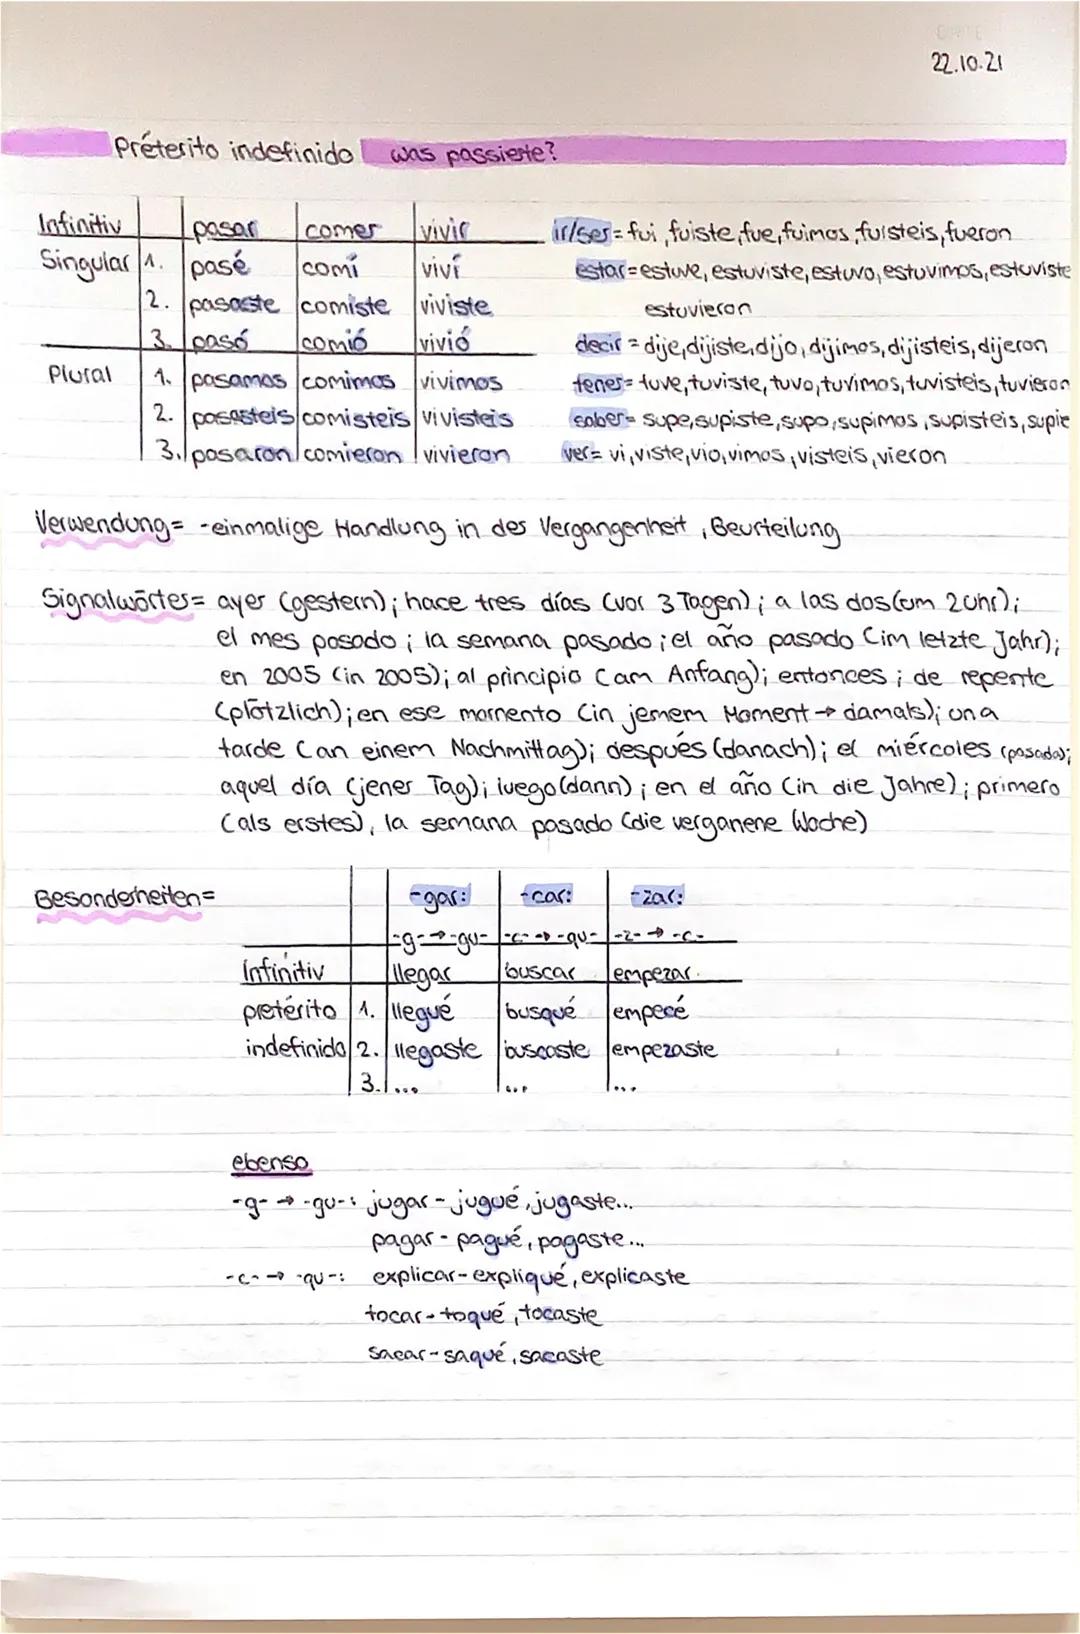 DATE
22.10.21
Préterito indefinido was passierte?
Infinitiv pasar comer vivir
Singular 1. pasé comí viví
2. pasaste comiste viviste
3. pasó comió vivió
Plural 1. pasamos comimos vivimos
2. pasasteis comisteis vivisteis
3. pasaron comieron vivieron
ir/ser= fui, fuiste, fue, fuimos, fuisteis, fueron
estar= estuve, estuviste, estuvo, estuvimos, estuviste
estuvieron
decir = dije, dijiste, dijo, dijimos, dijisteis, dijeron
tener= tuve, tuviste, tuvo, tuvimos, tuvisteis, tuvieron
saber= supe, supiste, supo, supimos, supisteis, supie
ver= vi, viste, vio, vimos, visteis, vieron
Verwendung= -einmalige Handlung in der Vergangenheit, Beurteilung
Signalwörter= ayer (gestern); hace tres días (vor 3 Tagen); a las dos (um 2 Uhr);
el mes pasado; la semana pasado; el año pasado (im letzte Jahr);
en 2005 (in 2005); al principio (am Anfang); entonces; de repente
(plötzlich); en ese momento (in jenem Moment → damals); una
tarde (an einem Nachmittag); después (danach); el miércoles (pasado);
aquel día (jener Tag); luego (dann); en el año (in die Jahre); primero
(als erstes), la semana pasado (die verganene Woche)
Besonderheiten= -gar: -car: -zar:
-g- → -gu- -c- → -qu- -z- → -c-
Infinitiv llegar buscar empezar
pretérito 1. llegué busqué empecé
indefinido 2. llegaste buscaste empezaste
3. ... ... ...
ebenso
-g- → -gu-: jugar - jugué, jugaste...
pagar - pagué, pagaste...
-c- → -qu-: explicar - expliqué, explicaste
tocar - toqué, tocaste
sacar - saqué, sacaste